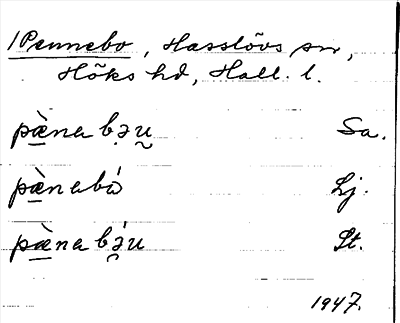 1 Pennebo, Hasslövs sn,
Höks hd, Hall. l.
pæ̱̀na bə̣u̯ Sa.
pæ̱̀nabǻ Lj.
pæ̱̀na bə̯́u St.
1947.